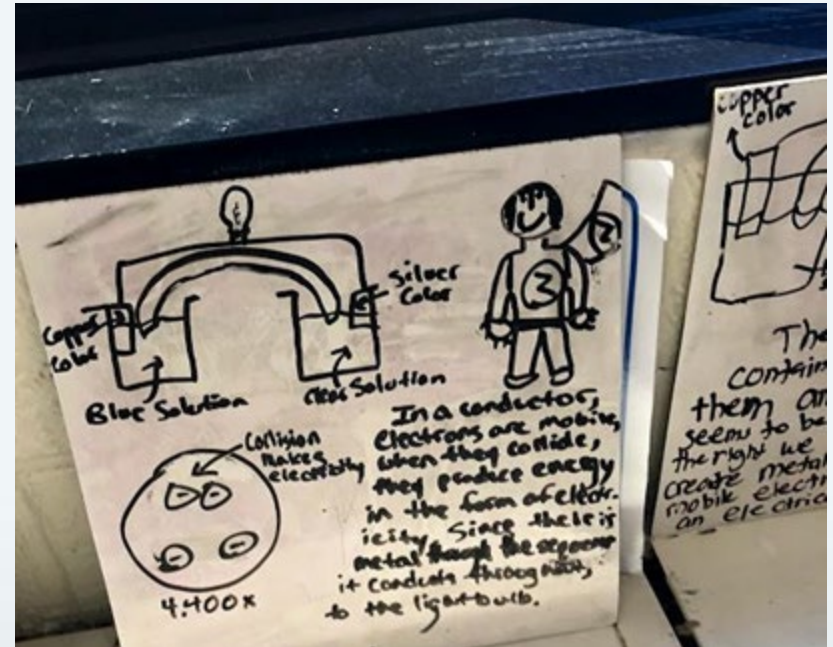 Copper
color
Silver
Color
Blue Solution
clear Solution
3
3
Collision
Makes
electricity
4.400x
In a conductor,
electrons are mobile,
when they collide,
they produce energy
in the form of electr-
icity. Since there is
metal through the
it conducts through
to the lightbulb.
copper
color
The
contain
them an
seems to be
the right we
create metal
mobile electr
an electrica